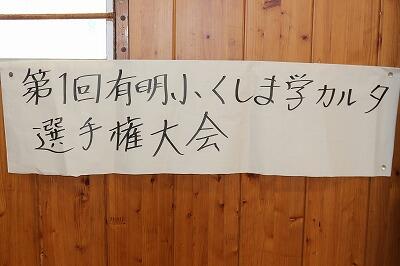 第1回有明小、くしま学カルタ
選手権大会